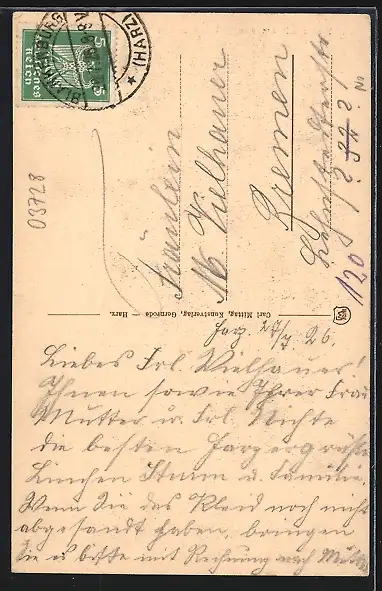 BLANKENBURG (HARZ)
5 5
Deutsches Reich
03728
Fräulein
M. Vielhauer
Bremen
? 37 ? !
No
120
Carl Mittag, Kunstverlag, Gernrode - Harz.
Harz. 27/7 26.
Liebes Frl. Vielhauer!
Ihnen sowie Ihrer Frau
Mutter u. Frl. Nichte
die besten Harzergrüße
Linchen Sturm u. Familie.
Wenn Sie das Kleid noch nicht
abgesandt haben, bringen
Sie es bitte mit Rechnung nach